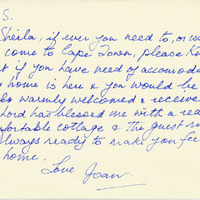 S.
Sheila, if ever you need to, or w
come to Cape Town, please K
t if you have need of accomoda
home is here & you would be
warmly welcomed & receive
Lord has blessed me with a rea
fortable cottage & the guest r
always ready to make you fee
home.
Love Joan